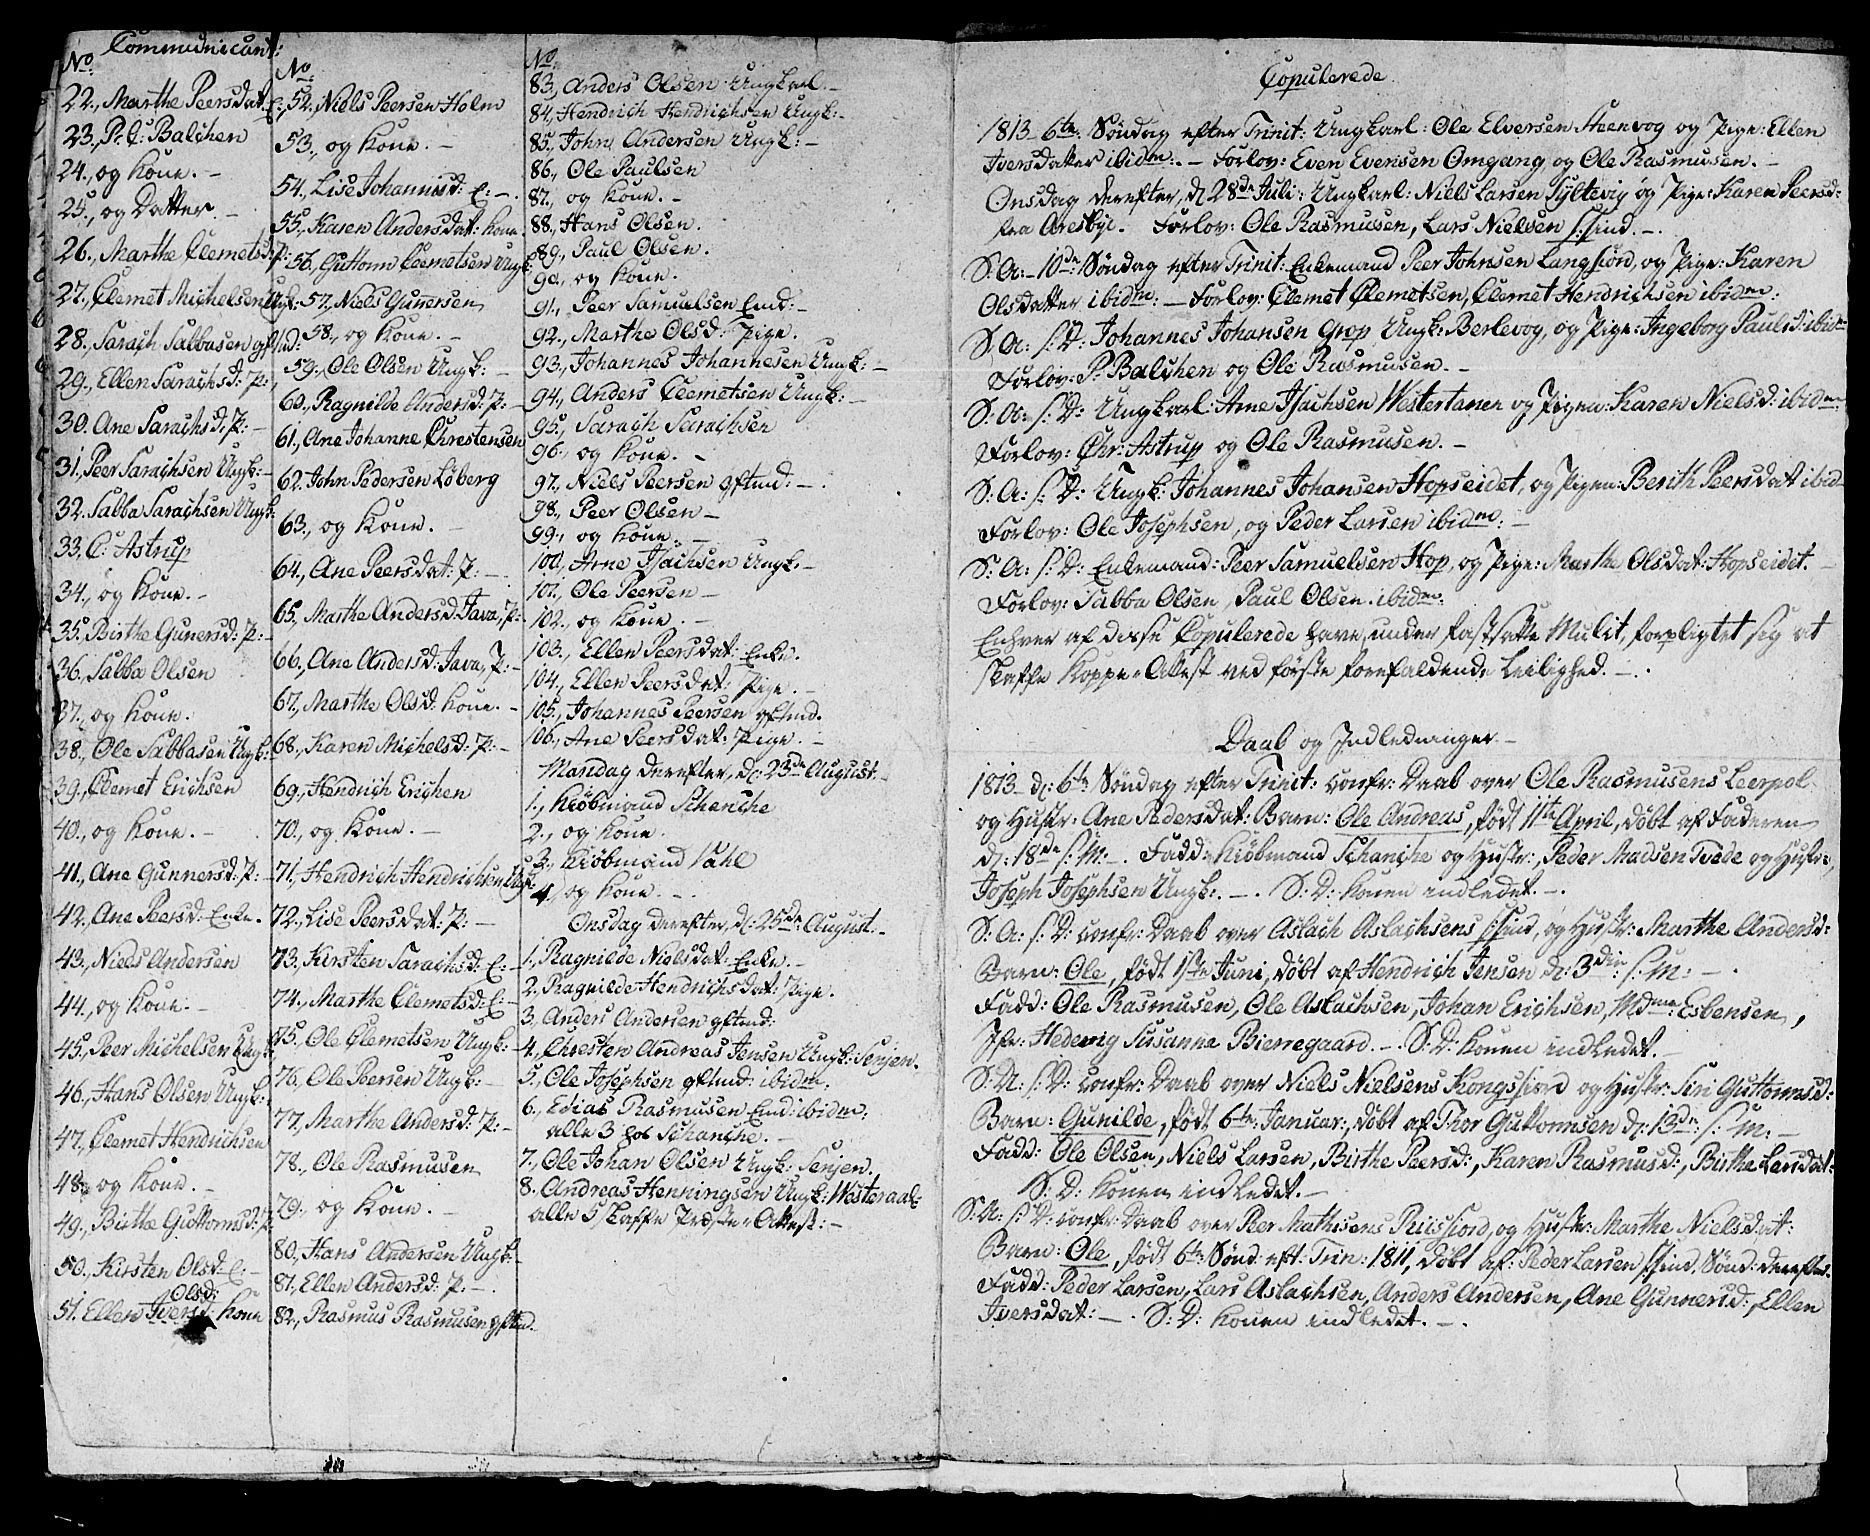 Communicant:
No
22., Marthe Peersdat: E:
23., Pr. C: Balchen
24., og Kone. -
25., og Datter. -
26., Marthe Clemetsd: P:
27., Clemet Michelsen Ugk:
28., Sarach Sabbasen gftmd:
29., Ellen Sarachsd: P: -
30. Ane Sarachsd: P: -
31., Peer Sarachsen Ungk: -
32. Sabba Sarachsen Ungk:
33. C: Astrup
34., og Kone. -
35. Birthe Gunersd: P: -
36., Sabba Olsen
37., og Kone.
38., Ole Sabbasen Ugk:
39., Clemet Erichsen
40., og Kone. -
41., Ane Gunnersd: P: -
42., Ane Peersd: Enke.
43., Niels Andersen
44., og Kone. -
45., Peer Michelsen Ungk:
46., Hans Olsen Ungk:
47., Clemet Hendrichsen
48., og Kone. -
49., Birthe Guttormsd: P:
50., Kirsten Olsd: E: -
Olsd:
51. Ellen Iversd: Kone
No
52., Niels Peersen Holm
53., og Kone. -
54., Lise Johannisd: E: -
55., Karen Andersdat: Kone.
56., Guttorm Clemetsen Ungk:
57., Niels Gunersen
58., og Kone. -
59., Ole Olsen Ungk: -
60., Ragnilde Andersd: P: -
61., Ane Johanne Chrestensen
62. John Pedersen Löberg
63., og Kone. -
64., Ane Peersdat: P: -
65., Marthe Andersd: Java, P:
66., Ane Andersd: Java, P: -
67., Marthe Olsd: Kone. -
68., Karen Michelsd: P: -
69., Hendrich Erichen
70., og Kone. -
71., Hendrich Hendrichsen Ugk:
72., Lise Peersdat: P: -
73., Kirsten Sarachsd: E: -
74., Marthe Clemetsd: E: -
75., Ole Clemetsen Ungk: -
76., Ole Peersen Ungk: -
77., Marthe Andersd: P: -
78., Ole Rasmusen
79., og Kone. -
80., Hans Andersen Ungk: -
81., Ellen Andersd: P: -
82., Rasmus Rasmusen gftmd.
No
83., Anders Olsen Ungkarl. -
84., Hendrich Hendrichsen Ungk: -
85., John Andersen Ungk: -
86., Ole Paulsen
87., og Kone. -
88., Hans Olsen.
89., Paul Olsen.
90., og Kone.
91., Peer Samuelsen Emd: -
92., Marthe Olsd: Pige.
93., Johannes Johannesen Ungk: -
94., Anders Clemetsen Ungk: -
95., Sarach Sarachsen
96., og Kone. -
97., Niels Peersen gftmd: -
98., Peer Olsen -
99., og Kone. -
100., Arne Isachsen Ungk: -
101., Ole Peersen -
102., og Kone. -
103., Ellen Peersdat: Enke.
104., Ellen Peersdat: Pige. -
105., Johannes Peersen gftmd.
106., Ane Peersdat: Pige. -
Mandag derefter, d: 23de August. -
1., Kiöbmand Schanche
2., og Kone.
3., Kiöbmand Vahl
4., og Kone. -
Onsdag derefter, d: 25de August. -
1., Ragnilde Nielsdat: Enke. -
2., Ragnilde Hendrichsdat: Pige.
3., Anders Andersen gftmd:
4., Chresten Andreas Jensen Ungk: Senjen.
5., Ole Josephsen gftmd: ibidm.
6., Edias Rasmusen Emd: ibidm:
alle 3 hos Schanche. -
7., Ole Johan Olsen Ungk: Senjen.
8. Andreas Henningsen Ungk: Westeraal:
alle 5 skaffe Præste-Attest: -
Copulerede
1813 6te Söndag efter Trinit: Ungkarl: Ole Elversen Steenvog og Pige: Ellen
Iversdatter ibidm: - Forlov: Even Evensen Omgang, og Ole Rasmusen. -
Onsdag derefter, d: 28de Juli: Ungkarl: Niels Larsen Syltevig og Pige: Karen Peersd:
fra Aresbye. Forlov: Ole Rasmusen, Lars Nielsen sind. -
S: A: - 10de Söndag efter Trinit: Enkemand Peer Johnsen Langfiord, og Pige: Karen
Olsdatter ibidm: - Forlov: Clemet Clemetsen, Clemet Hendrichsen ibidm:
S: A: s: D: Johannes Johansen Grop Ungk: Berlevog, og Pige: Ingeborg Paulsd: ibidm
Forlov: P. Balchen og Ole Rasmusen. -
S: A: s: D: Ungkarl: Arne Isachsen Westertanen og Pigen: Karen Nielsd: ibidm
Forlov: Chr: Astrup og Ole Rasmusen. -
S: A: s: D: Ungk: Johannes Johansen Hopseidet, og Pigen: Berith Peersdat ibid-
Forlov: Ole Josephsen, og Peder Larsen ibidm: -
S: A: s: D: Enkemand: Peer Samuelsen Hop, og Pige: Marthe Olsdat: Hopseidet. -
Forlov: Sabba Olsen, Paul Olsen. ibidm:
Enhver af disse Copulerede have, under fastsatte Mulct, forpligtet sig at
skaffe Koppe-Attest ved förste forefaldende Leilighed. -
Daab og Indledninger -
1813 d: 6te Söndag efter Trinit: confr: Daab over Ole Rasmusens Leerpol
og Hustr. Ane Pedersdat: Barn: Ole Andreas, född 11te April, döbt af Faderen
d: 18de s: M: -. Fadd: Kiöbmand Schanche og Hustr:, Peder Madsen Tvede og Hustr:,
Joseph Josephsen Ungk: -. S: D: Konen indledet. -
S: A: s: D: confr: Daab over Aslach Aslachsens sind, og Hustr: Marthe Andersd:
Barn: Ole, födt 1ste Juni, döbt af Hendrich Jensen d: 3die s: M: -
Fadd: Ole Rasmusen, Ole Aslachsen, Johan Erichsen, Mdme: Esbensen,
Jfr: Hedevig Susanne Bierregaard. - S: D: Konen indledet. -
S: A: s: D: confr: Daab over Niels Nielsens Kongsfiord og Hustr: Siri Guttormsd:
Barn: Gunilde, födt 6te Januar:, döbt af Thor Guttormsen d: 13de s: M: -
Fadd: Ole Olsen, Niels Larsen, Birthe Peersd:, Karen Rasmusd:, Birthe Larsdat:
S: D: Konen indledet. -
S: A: s: D: confr: Daab over Peer Mathisens Riisfiord, og Hustr: Marthe Nielsdat:
Barn: Ole, födt 6te Sönd: eft: Trin: 1811, döbt af: Peder Larsen sind, Sönd: derefter.
Fadd: Peder Larsen, Lars Aslachsen, Anders Andersen, Ane Gunnersd:, Ellen
Iversdat: -. S: D: Konen indledet. -